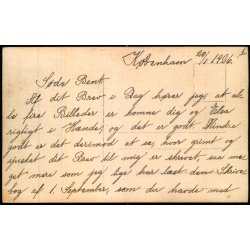 København 20/1 1906.
Søde Bent.
Af dit Brev i Dag hører jeg, at al-
le fire Billeder er komne dig og Else
rigtigt i Hænde, og det er godt. Mindre
godt er det derimod at se, hvor grimt og
sjusket dit Brev til mig er skrevet, saa me-
get mere som jeg lige har læst den Skrive-
bog af 1. September, som du havde med